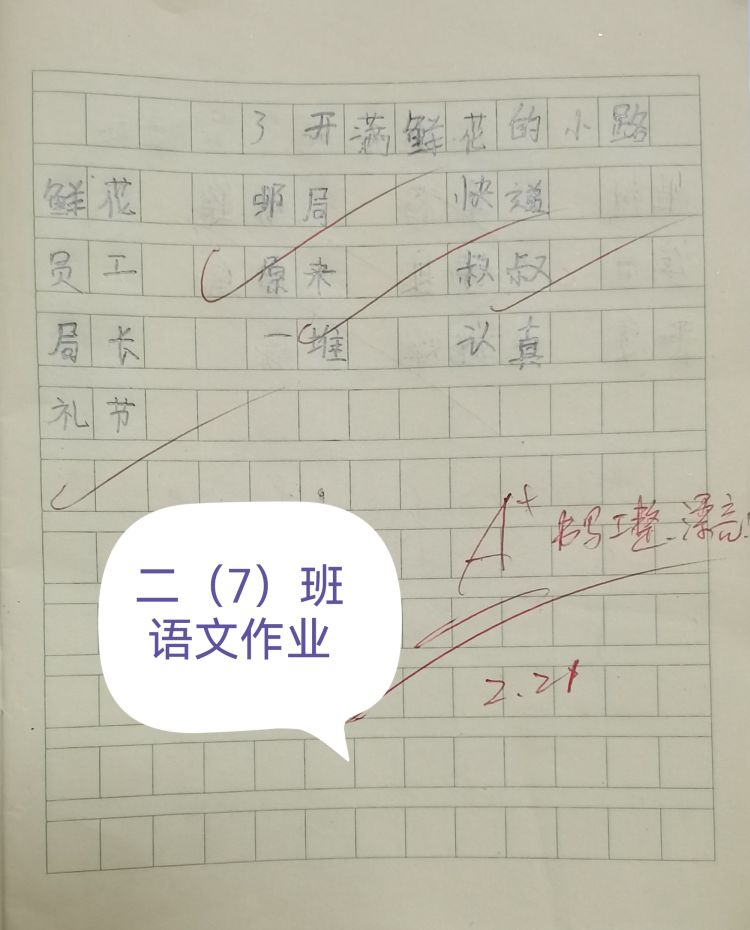 3 开满鲜花的小路
鲜花 邮局 快递
员工 原来 叔叔
局长 一堆 认真
礼节
A+ 书写工整、漂亮!
二（7）班
语文作业
2.21